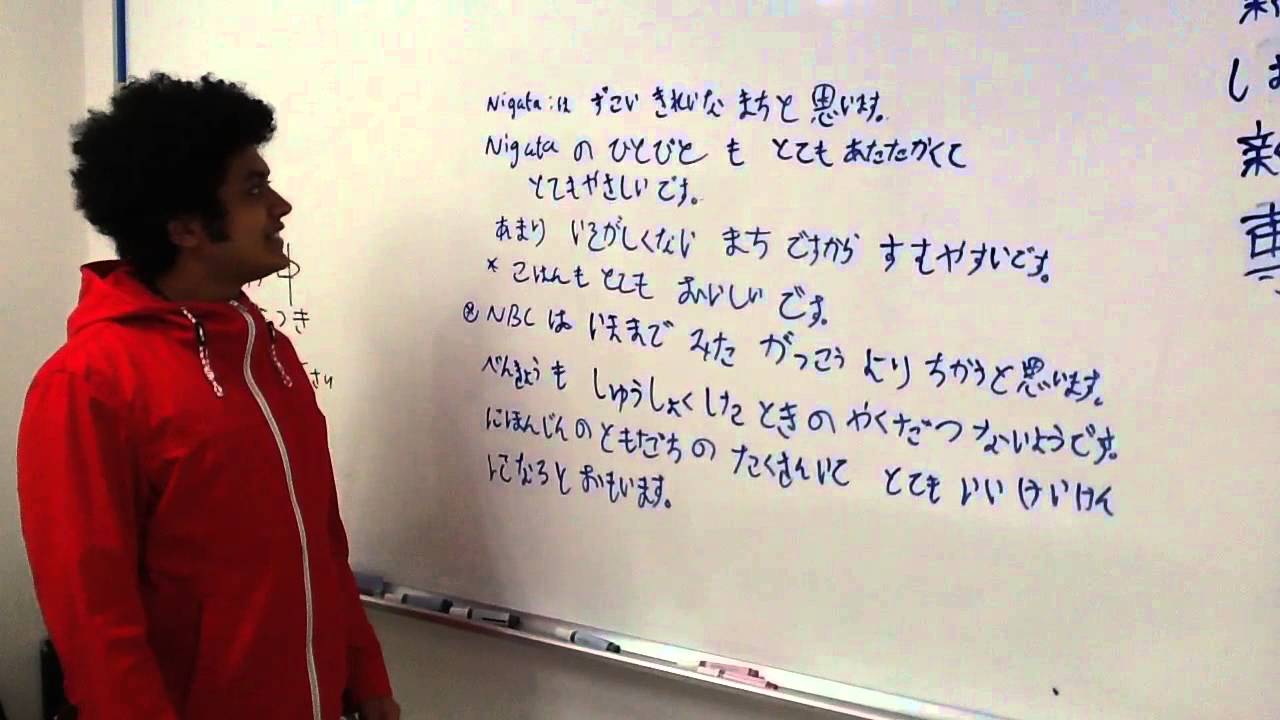 Nigata:は すごい きれいな まちと 思います。
Nigata の ひとびと も とても あたたかくて
とてもやさしいです。
あまり いそがしくない まち ですから すむやすいです。
* ごはんも とても おいしい です。
② NBC は いままで みた がっこう より ちがうと 思います。
べんきょうも しゅうしょく ときの やくだつ ないようです。
にほんじんの ともだちの たくさんいて とても いい けいけん
になろと おもいます。
中
つき
さい
し
新